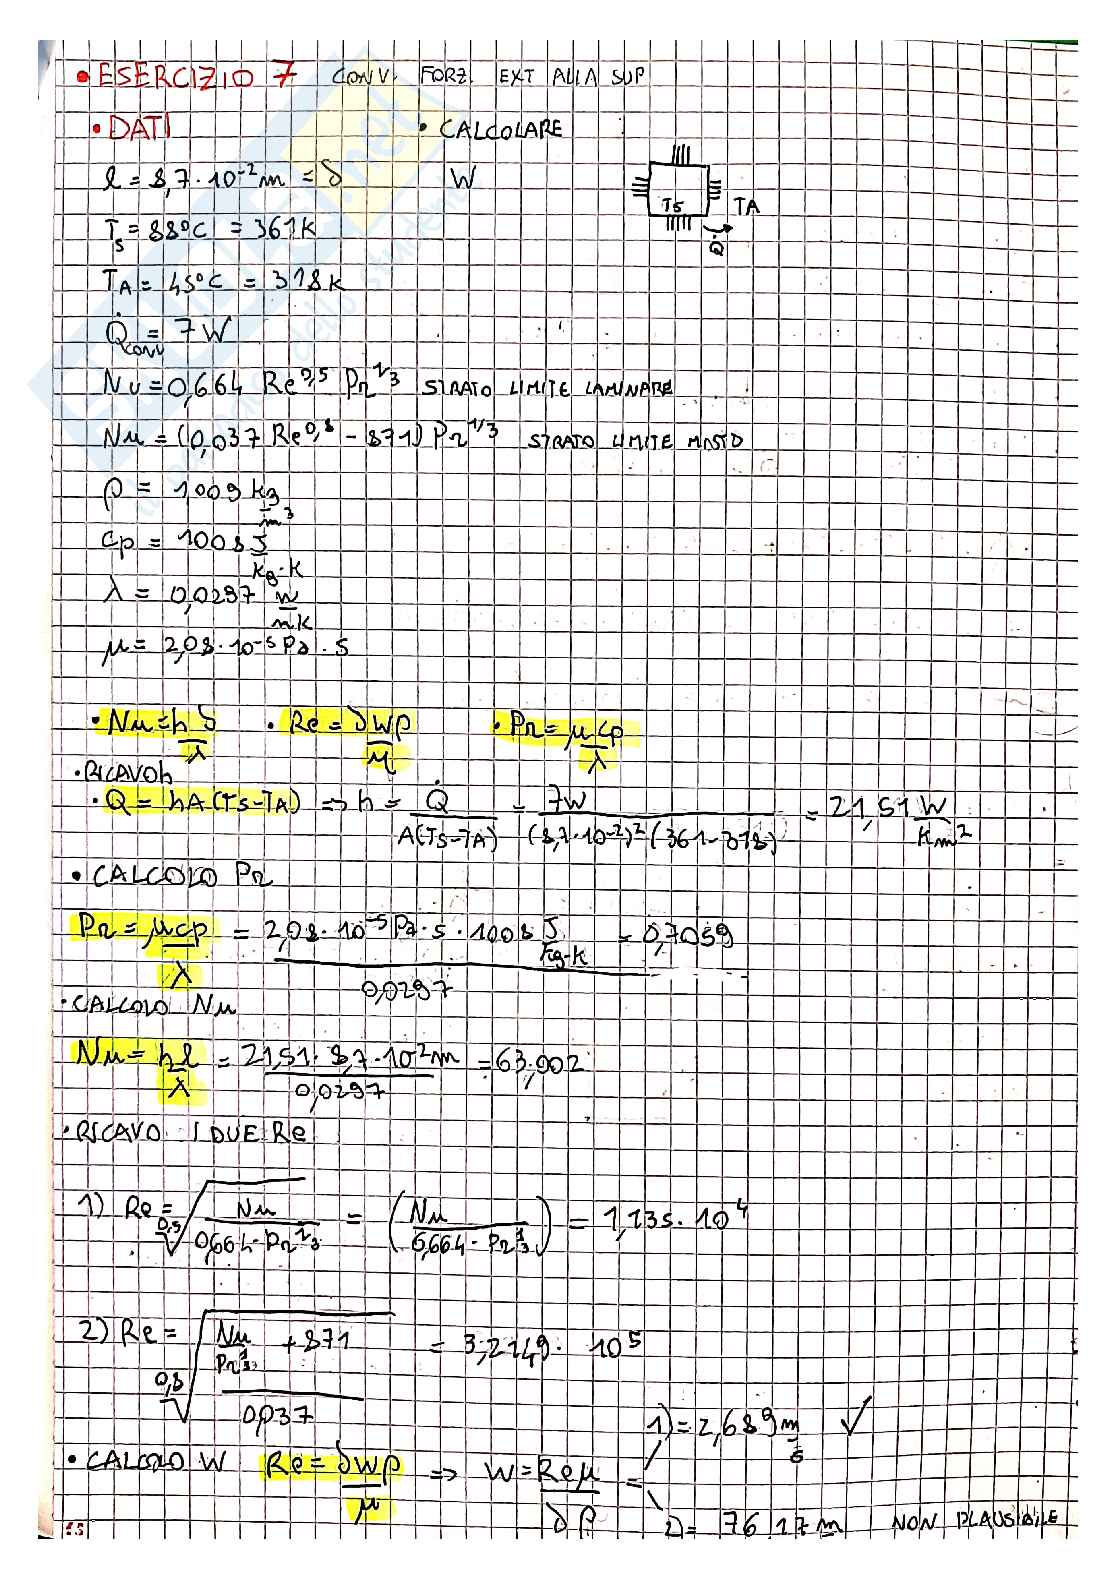 • ESERCIZIO 7 CONV. FORZ. EXT ALLA SUP
• DATI • CALCOLARE
l = 8,7·10⁻²m = δ W
Ts = 88°C = 361K
TA = 45°C = 318K
Q̇conv = 7W
Nu = 0,664 Re^0,5 Pr^1/3 STRATO LIMITE LAMINARE
Nu = (0,037 Re^0,8 - 871) Pr^1/3 STRATO LIMITE MISTO
TS TA
Q̇
ρ = 1,009 kg/m³
cp = 1008 J/kg·K
λ = 0,0297 W/mK
μ = 2,08·10⁻⁵ Pa·s
• Nu = hδ/λ • Re = δWρ/μ • Pr = μcp/λ
• RICAVO h
• Q̇ = hA(Ts-TA) => h = Q̇/A(Ts-TA) = 7W/(8,7·10⁻²)²(361-318) = 21,51 W/Km²
• CALCOLO Pr
Pr = μcp/λ = 2,08·10⁻⁵Pa·s·1008 J/kg·K / 0,0297 = 0,7059
• CALCOLO Nu
Nu = hl/λ = 21,51·8,7·10⁻²m / 0,0297 = 63,002
• RICAVO I DUE Re
1) Re = 0,5√(Nu/0,664·Pr^1/3) = (Nu/0,664·Pr^1/3) = 1,135·10⁴
2) Re = 0,8√((Nu/Pr^1/3 + 871)/0,037) = 3,2149·10⁵
1) = 2,689 m/s ✓
• CALCOLO W Re = δWρ/μ => W = Reμ/δρ =
2) = 76,17 m NON PLAUSIBILE